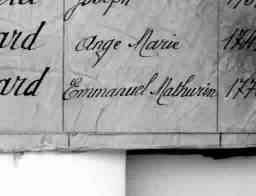 Joseph
ard Ange Marie 174
ard Emmanuel Mathurin 177